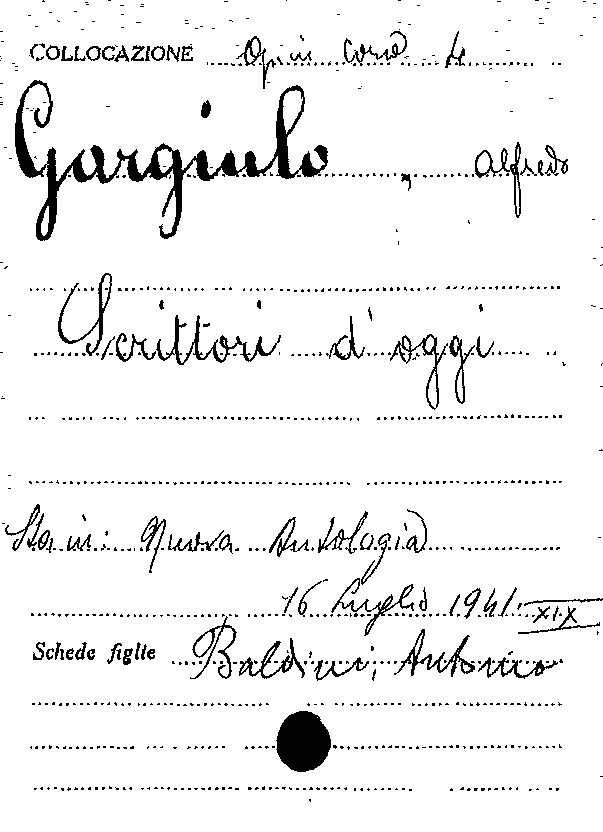 COLLOCAZIONE Opin Corso
Gargiulo, Alfredo
Scrittori d'oggi
Sta in: Nuova Antologia
16 Luglio 1941. XIX
Schede figlie Baldini, Antonio